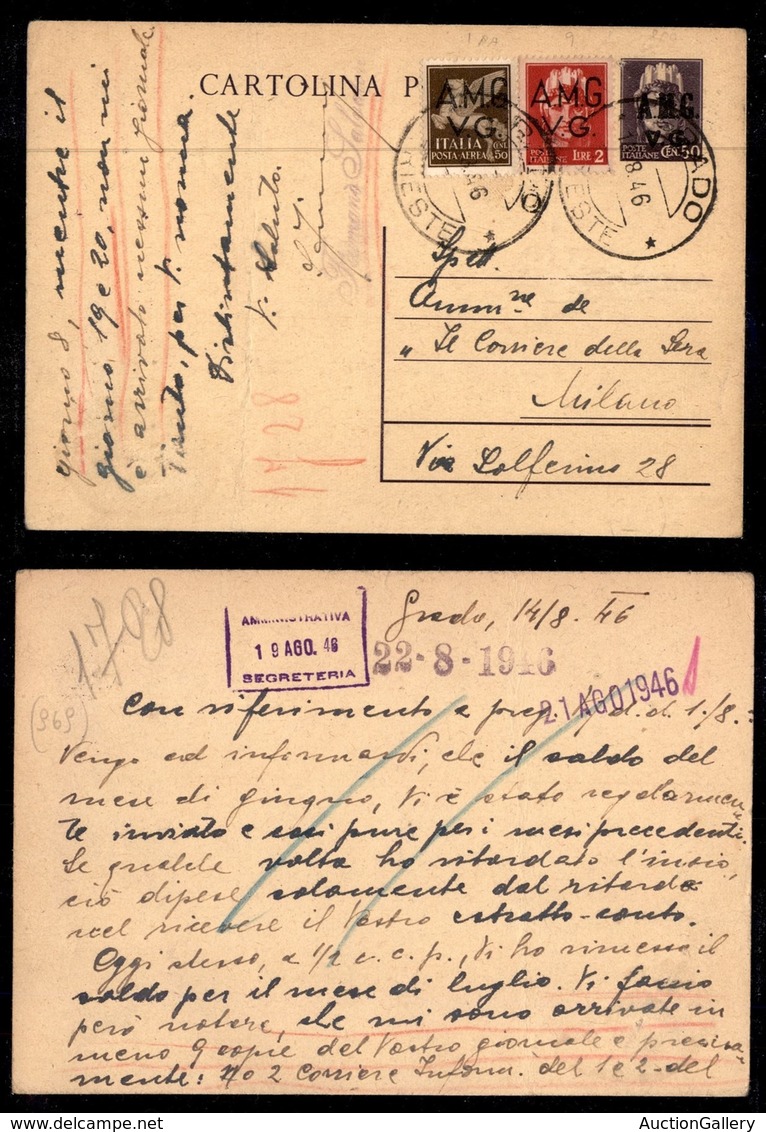 CARTOLINA P
A.M.G.
V.G.
ITALIA
CENT. 50
POSTA-AEREA
A.M.G.
V.G.
POSTE
ITALIANE
LIRE 2
A.M.G.
V.G.
POSTE
ITALIANE
CEN. 50
GRADO
TRIESTE
8.46
Spett.
Ammne de
"Il Corriere della Sera
Milano
Via Solferino 28
giorno 8, mentre il
giorno 19 e 20, non mi
è arrivato nessun giornale.
Tanto, per norma.
Distintamente
V. Saluto.
1728
1728
(969)
AMMINISTRATIVA
19 AGO. 46
SEGRETERIA
Grado, 14/8. 46
22-8-1946
21 AGO 1946
Con riferimento a preg. d. d. 1./8.
Vengo ad informarvi, che il saldo del
mese di giugno, Vi è stato regolarmen-
te inviato e così pure per i mesi precedenti.
Se qualche volta ho ritardato l'invio,
ciò dipese solamente dal ritardo
nel ricevere il Vostro estratto-conto.
Oggi stesso, a 1/2 c.c.p., Vi ho rimesso il
saldo per il mese di luglio. Vi faccio
però notare, che mi sono arrivate in
meno 9 copie del Vostro giornale e precisa-
mente: No 2 Corriere Inform. del 1 e 2 - del
AuctionGallery